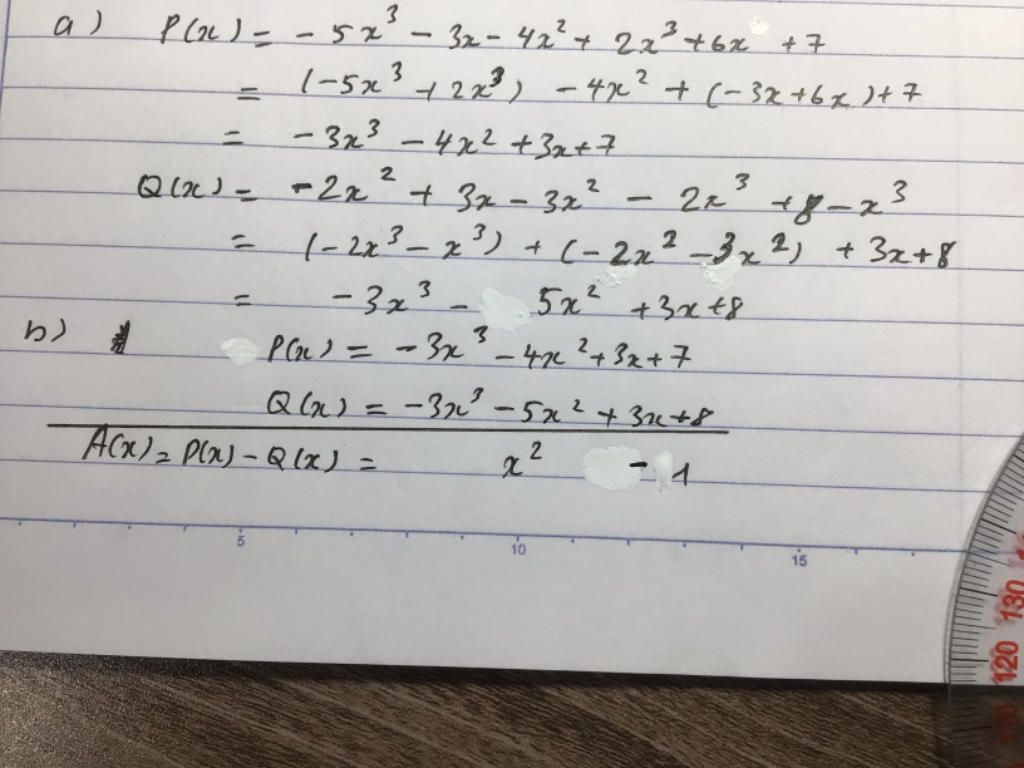 a) P(x) = - 5x³ - 3x - 4x² + 2x³ + 6x + 7
= (-5x³ + 2x³) - 4x² + (-3x + 6x) + 7
= - 3x³ - 4x² + 3x + 7
Q(x) = -2x² + 3x - 3x² - 2x³ + 8 - x³
= (-2x³ - x³) + (-2x² - 3x²) + 3x + 8
= - 3x³ - 5x² + 3x + 8
b) P(x) = - 3x³ - 4x² + 3x + 7
Q(x) = - 3x³ - 5x² + 3x + 8
A(x) = P(x) - Q(x) = x² - 1
5 10 15
130
120